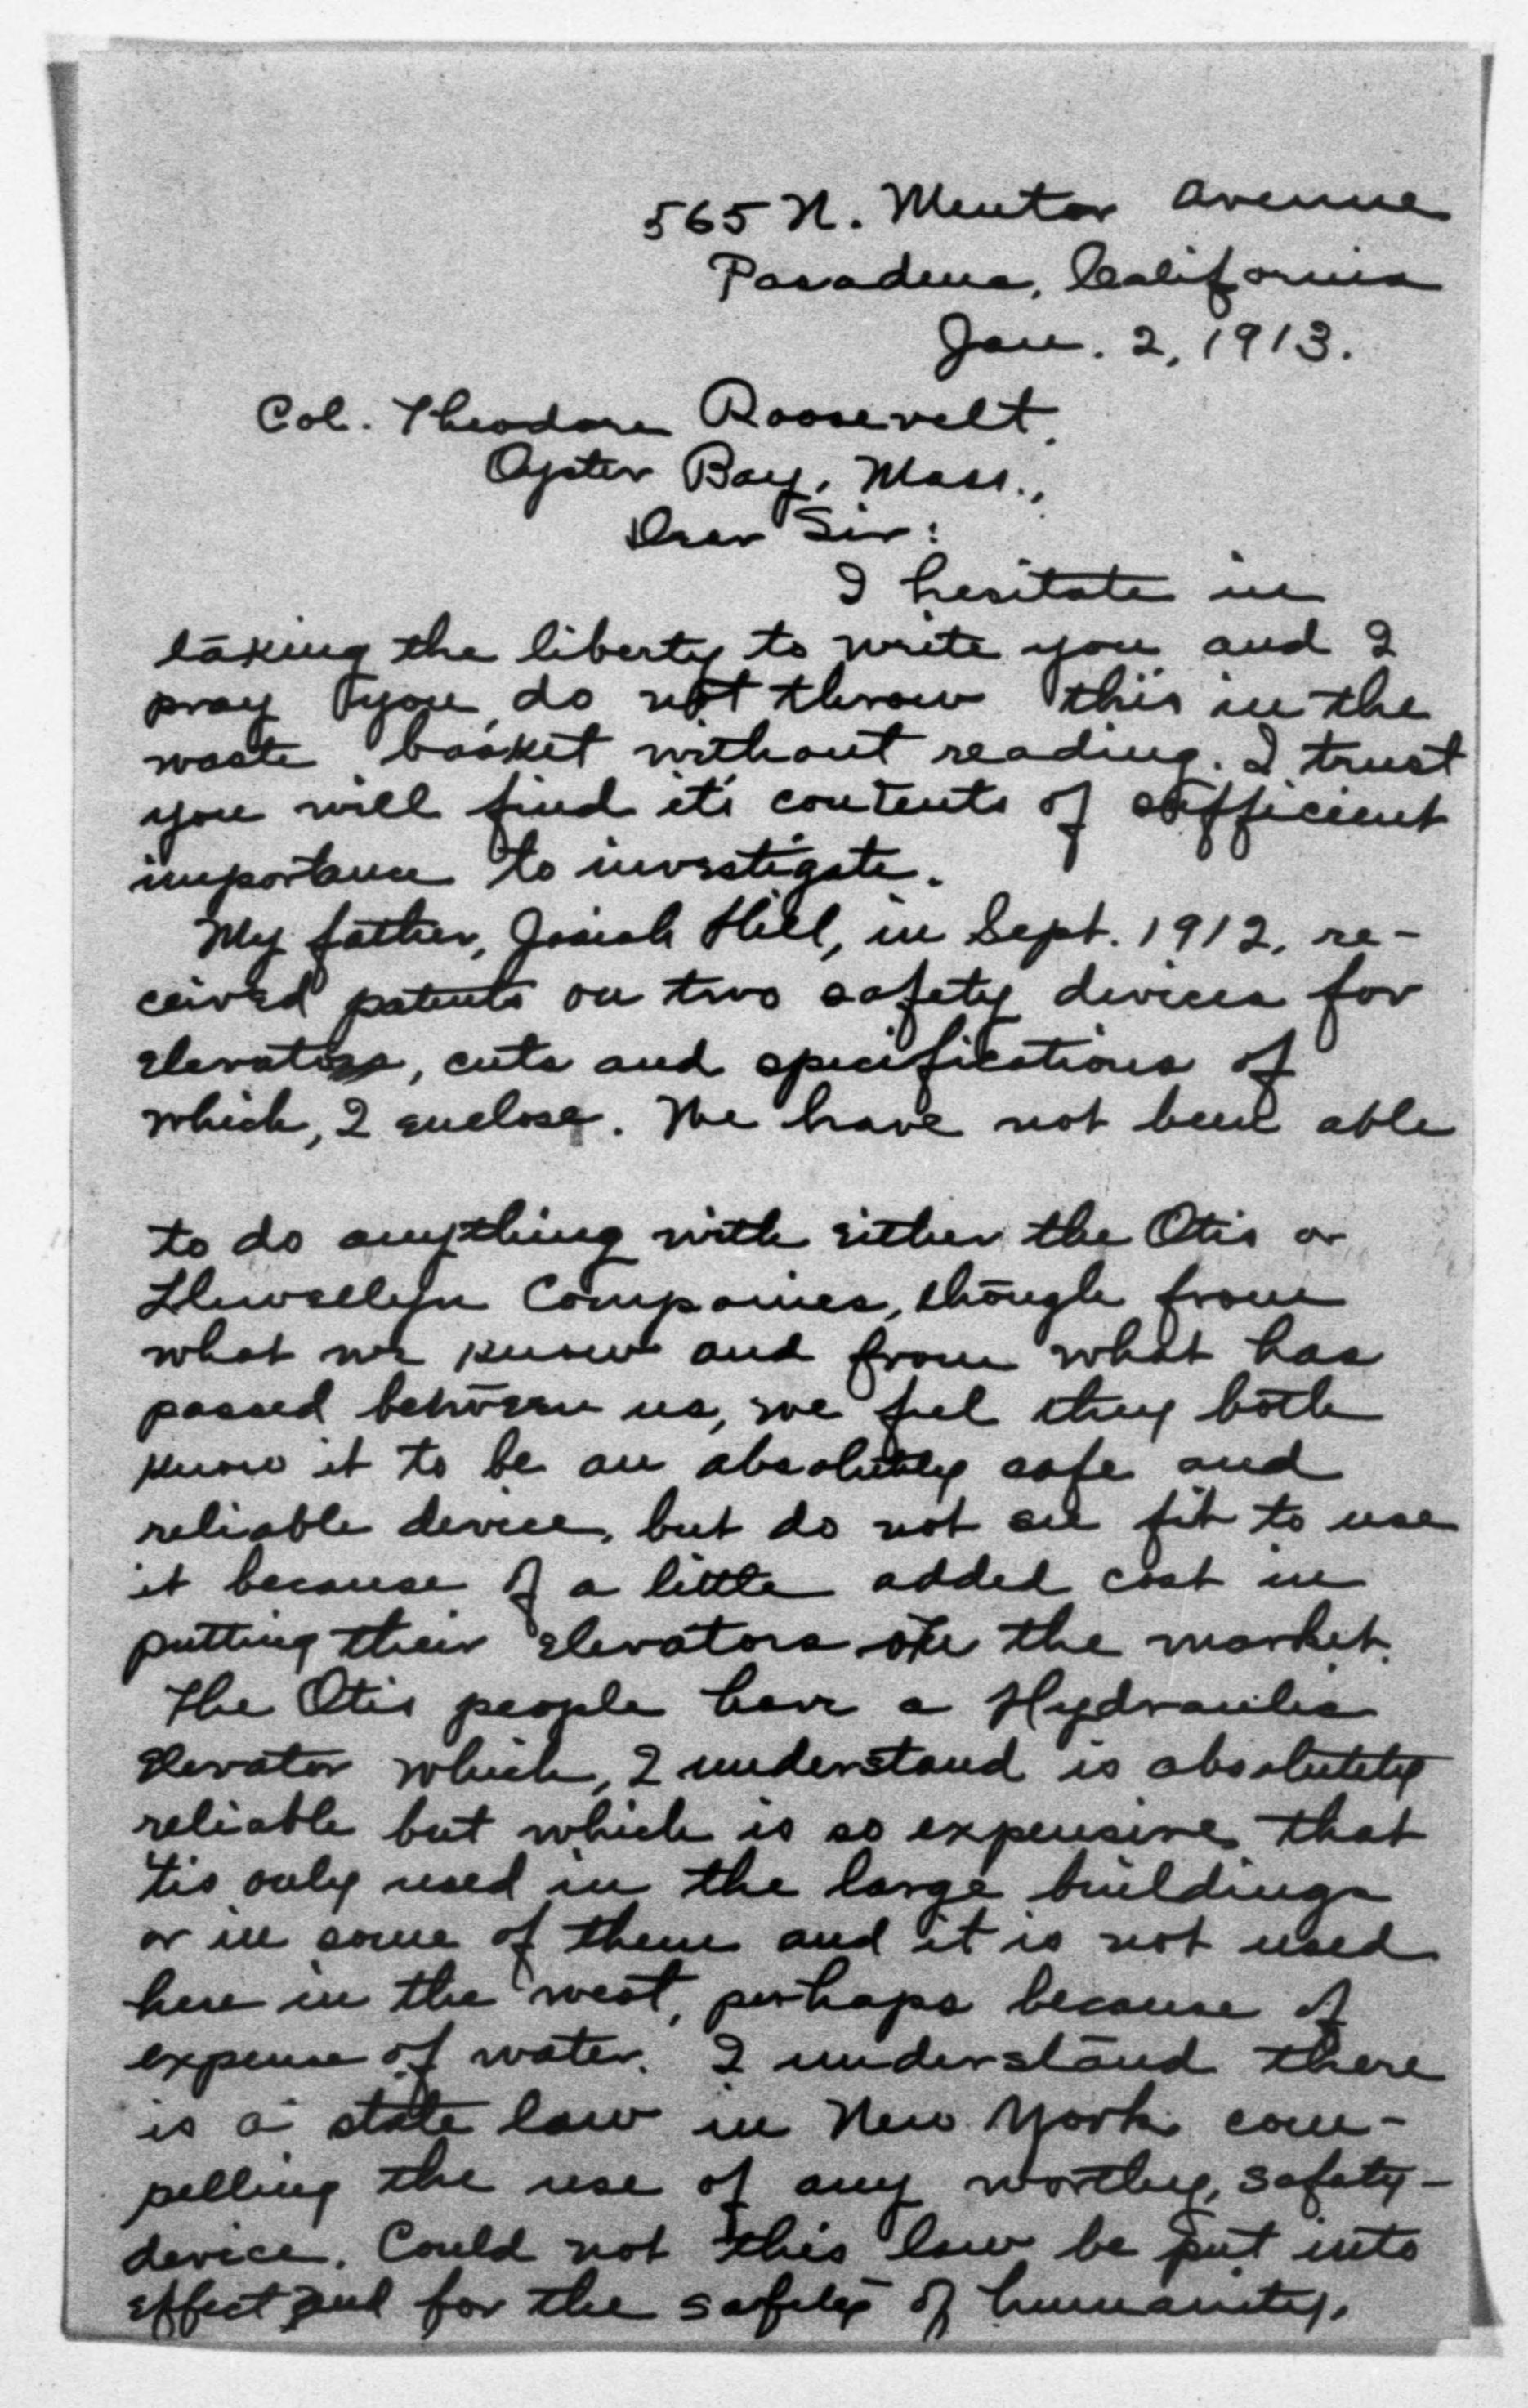 565 N. Mentor Avenue
Pasadena, California
Jan. 2, 1913.
Col. Theodore Roosevelt,
Oyster Bay, Mass.,
Dear Sir:
I hesitate in
taking the liberty to write you and I
pray you do not throw this in the
waste basket without reading. I trust
you will find it's contents of sufficient
importance to investigate.
My father, Josiah Hill, in Sept. 1912, re-
ceived patents on two safety devices for
elevators, cuts and specifications of
which, I enclose. We have not been able
to do anything with either the Otis or
Llewellyn Companies, though from
what we know and from what has
passed between us, we feel they both
know it to be an absolutely safe and
reliable device, but do not see fit to use
it because of a little added cost in
putting their elevators on the market.
The Otis people have a Hydraulic
elevator which, I understand is absolutely
reliable but which is so expensive that
'tis only used in the large buildings
or in some of them and it is not used
here in the west, perhaps because of
expense of water. I understand there
is a state law in New York com-
pelling the use of any worthy, safety-
device. Could not this law be put into
effect and for the safety of humanity,